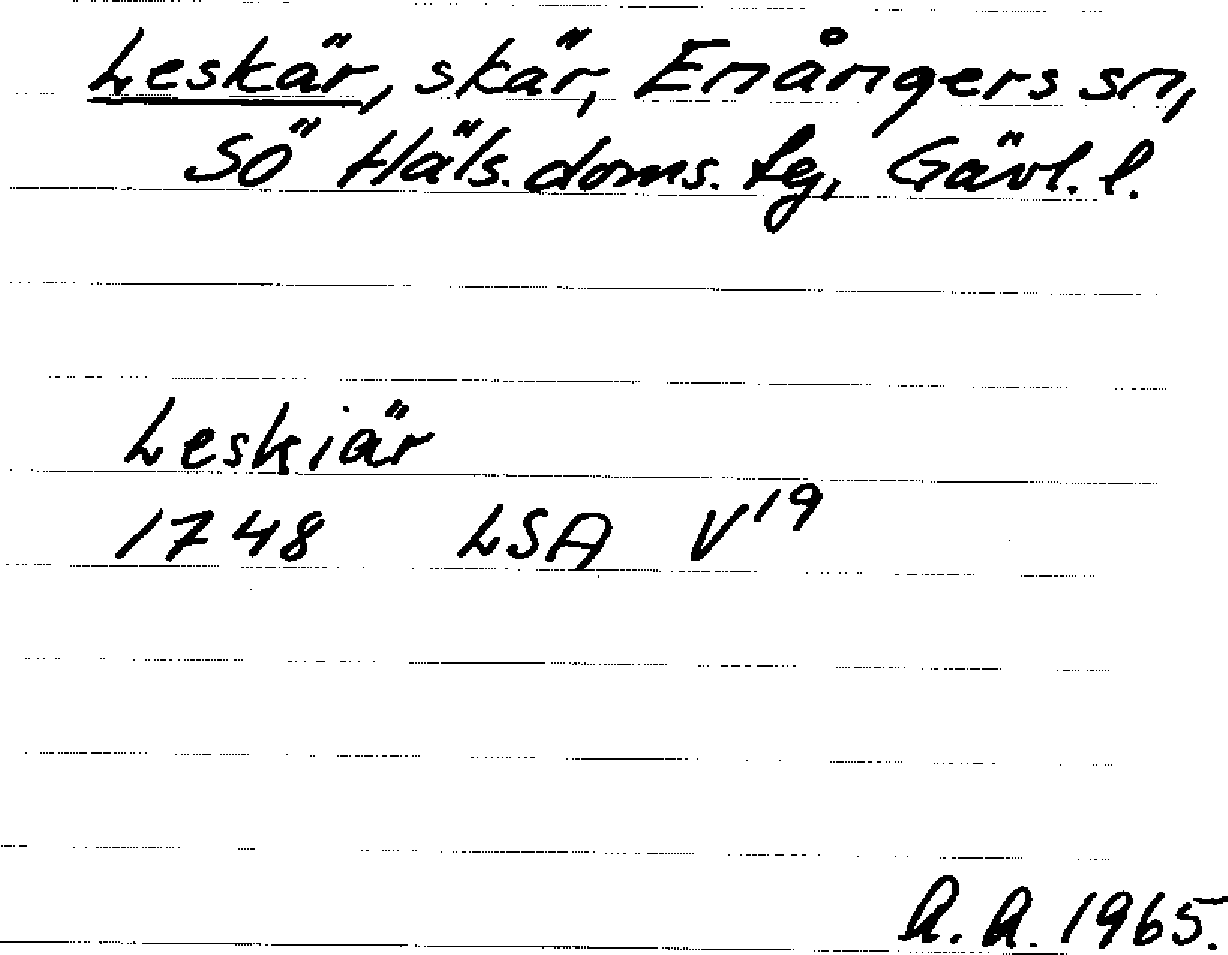 Leskär, skär, Enångers sn,
SÖ Häls. doms. tg, Gävl. l.
Leskiär
1748 LSA V19
A. A. 1965.